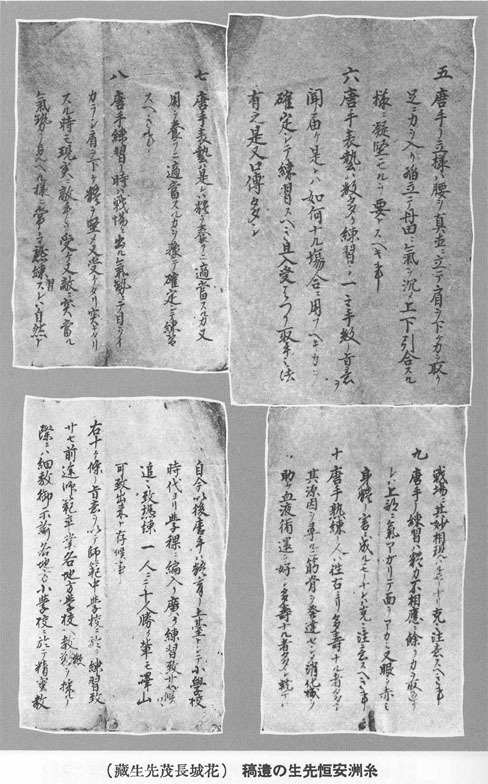 五 唐手ノ立樣ハ腰ヲ真直ニ立テ肩ヲ下ケ力ヲ取リ
足ニ力ヲ入リ踏立テ丹田ニ氣ヲ沉メ上下引合スル
樣ニ凝堅メルヿ要スヘキ事
六 唐手表藝ハ數多ク練習シ一々手數ノ旨意ヲ
聞届ケ是レハ如何ナル場合ニ用フヘキカヲ
確定シテ練習スヘシ且入受ハツシ取手ノ法
有之是又口傳多シ
七 唐手表藝ハ是レハ體ヲ養フニ適當スルカ又
用ヲ養フニ適當スルカヲ豫テ確定シテ練習
スヘキ事
八 唐手練習ノ時ハ戰場ニ出ル氣勢ニテ目ヲイ
カラシ肩ヲ下ケ體ヲ堅メ又受ケタリ突キタリ
スル時ニモ現實ニ敵手ヲ受ケ又敵ニ突當ル
氣勢ノ見ヘル樣ニ常々練習スレハ自然ト
戰場ニ其妙相現ハルモノナリ克ク注意スヘキ事
九 唐手ノ練習ハ體力不相應ニ餘リ力ヲ取過キ
レハ上部ニ氣アガリテ面ヲアカミ又眼ヲ赤ミ
身體ノ害ニ成ルモノナレハ克ク注意スヘキ事
十 唐手熟練ノ人ハ往古ヨリ多壽ナル者多シ
其源因ヲ尋ルニ筋骨ヲ發達セシメ消化機ヲ
助ケ血液循還ヲ好クシ多壽ナル者多シ就テハ
自今以後唐手ハ體育ノ土基トシテ小學校
時代ヨリ學課ニ編入リ廣ク練習致サセ候ハヽ
追々致熟練一人ニテ十人勝ノ輩モ澤山
可致出來ト存候事
右十ヶ條ノ旨意ヲ以テ師範中學校ニ於テ練習致
サセ前途師範ヲ卒業各地方學校ヘ教鞭ヲ採ルノ
際ニハ細敷御示諭各地方小學校ニ於テ精密教
糸洲安恒先生の遺稿（花城長茂先生藏）